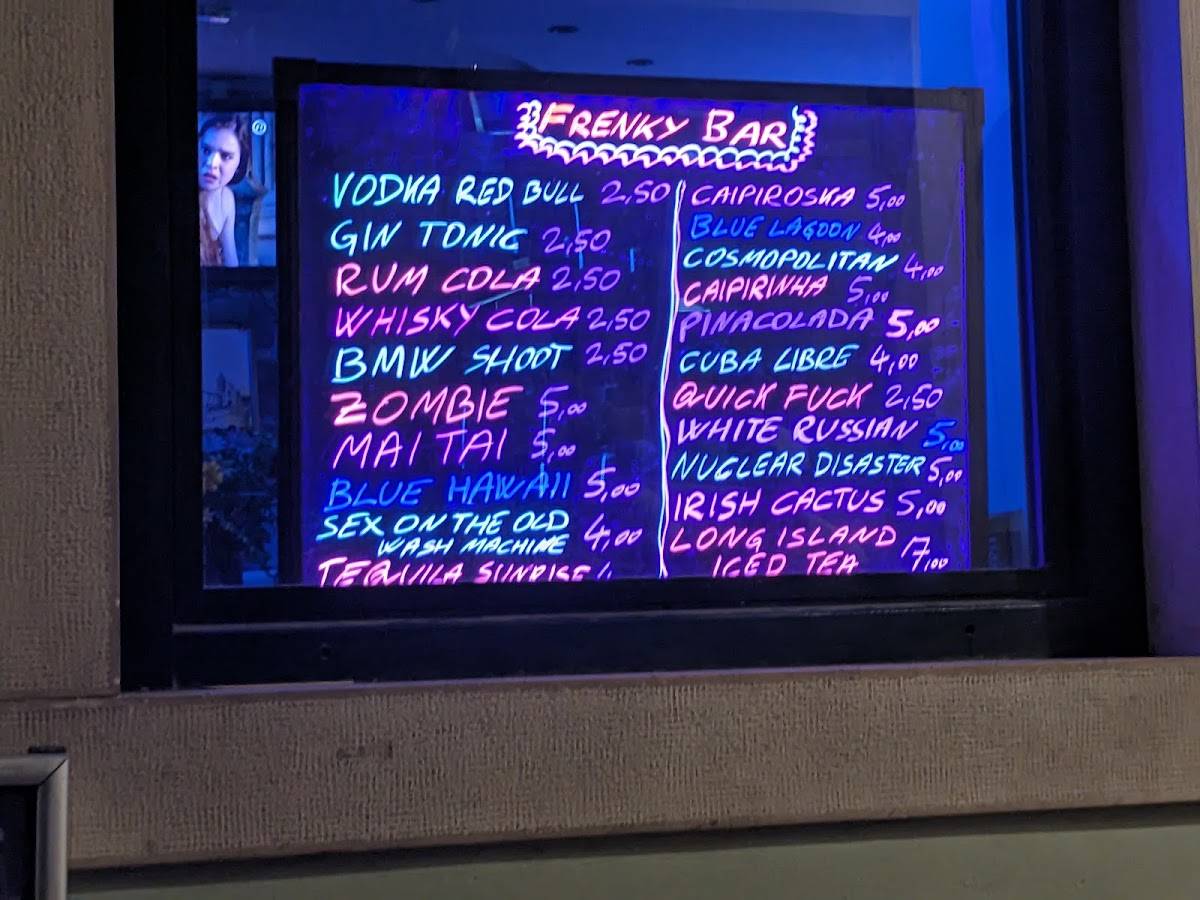 FRENKY BAR
VODKA RED BULL 2,50
GIN TONIC 2,50
RUM COLA 2,50
WHISKY COLA 2,50
BMW SHOOT 2,50
ZOMBIE 5,00
MAI TAI 5,00
BLUE HAWAII 5,00
SEX ON THE OLD
WASH MACHINE 4,00
TEQUILA SUNRISE
CAIPIROSKA 5,00
BLUE LAGOON 4,00
COSMOPOLITAN 4,00
CAIPIRINHA 5,00
PINACOLADA 5,00
CUBA LIBRE 4,00
QUICK FUCK 2,50
WHITE RUSSIAN 5,00
NUCLEAR DISASTER 5,00
IRISH CACTUS 5,00
LONG ISLAND
ICED TEA 7,00